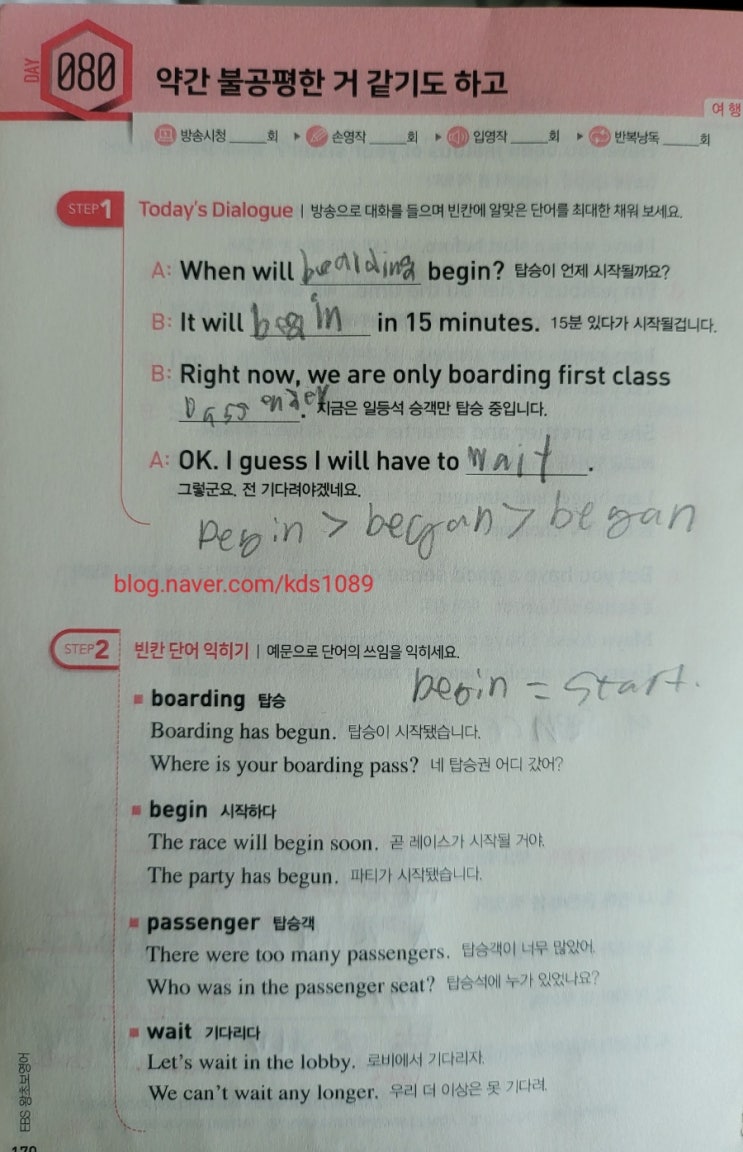 DAY 080 약간 불공평한 거 같기도 하고
여행
방송시청 _____회 ▶ 손영작 _____회 ▶ 입영작 _____회 ▶ 반복낭독 _____회
STEP 1 Today's Dialogue | 방송으로 대화를 들으며 빈칸에 알맞은 단어를 최대한 채워 보세요.
A: When will boarding begin? 탑승이 언제 시작될까요?
B: It will begin in 15 minutes. 15분 있다가 시작될겁니다.
B: Right now, we are only boarding first class
passenger. 지금은 일등석 승객만 탑승 중입니다.
A: OK. I guess I will have to wait.
그렇군요. 전 기다려야겠네요.
begin > began > began
blog.naver.com/kds1089
STEP 2 빈칸 단어 익히기 | 예문으로 단어의 쓰임을 익히세요.
begin = start.
boarding 탑승
Boarding has begun. 탑승이 시작됐습니다.
Where is your boarding pass? 네 탑승권 어디 갔어?
begin 시작하다
The race will begin soon. 곧 레이스가 시작될 거야.
The party has begun. 파티가 시작됐습니다.
passenger 탑승객
There were too many passengers. 탑승객이 너무 많았어.
Who was in the passenger seat? 탑승석에 누가 있었나요?
wait 기다리다
Let's wait in the lobby. 로비에서 기다리자.
We can't wait any longer. 우리 더 이상은 못 기다려.
EBS 왕초보영어
170